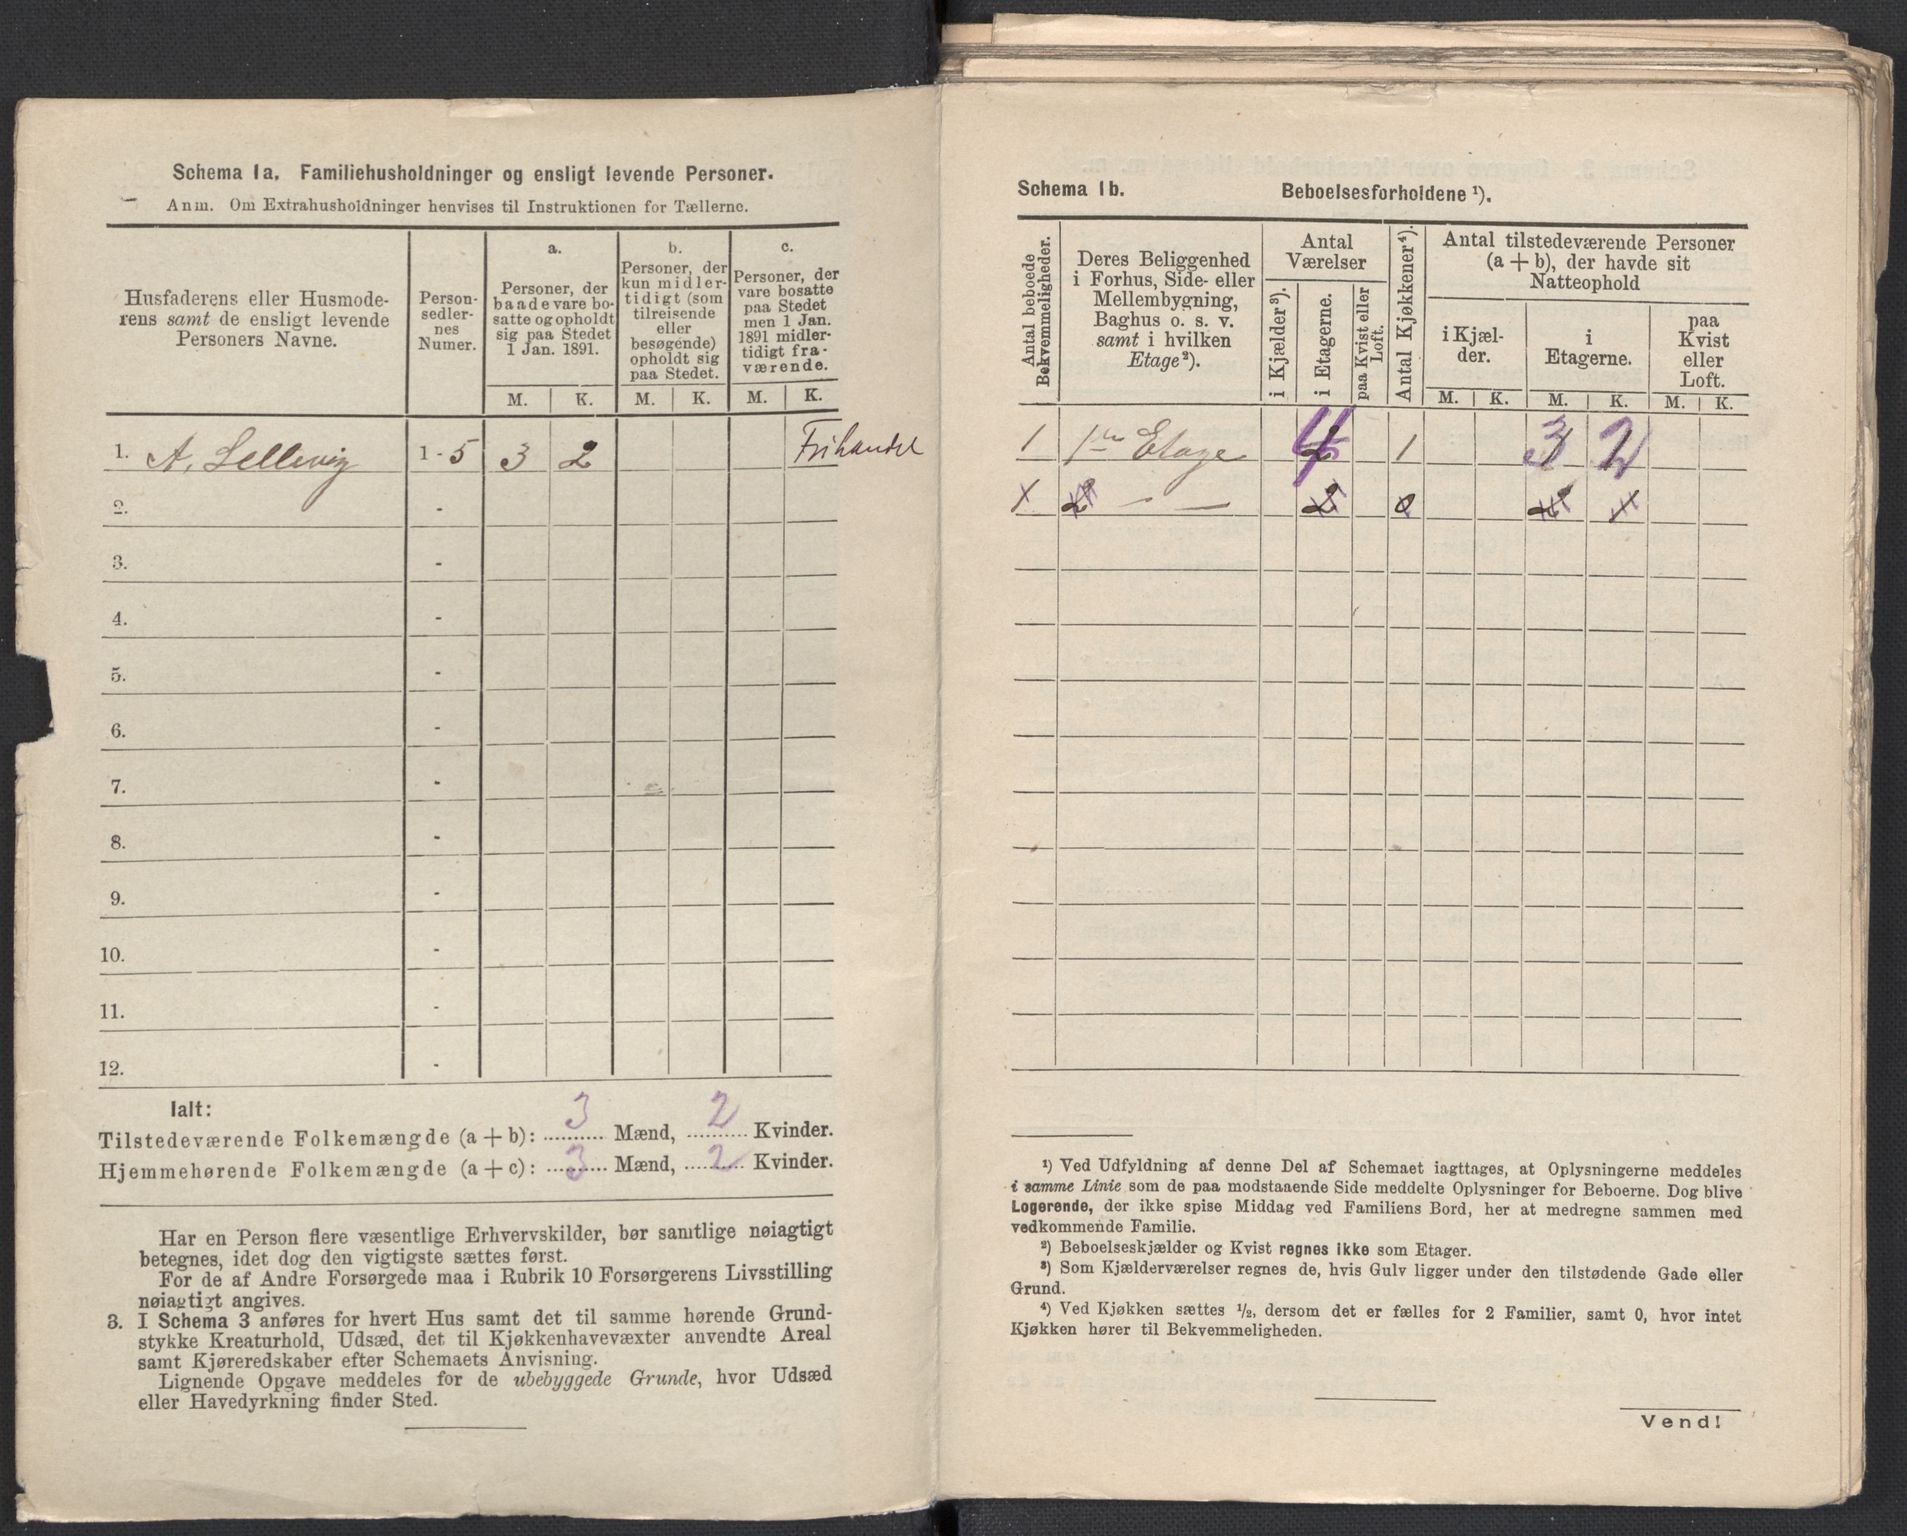 Schema 1a. Familiehusholdninger og ensligt levende Personer.
Anm. Om Extrahusholdninger henvises til Instruktionen for Tællerne.
Husfaderens eller Husmode-
rens samt de ensligt levende
Personers Navne.
Person-
sedler-
nes
Numer.
a.
Personer, der
baade vare bo-
satte og opholdt
sig paa Stedet
1 Jan. 1891.
b.
Personer, der
kun midler-
tidigt (som
tilreisende
eller
besøgende)
opholdt sig
paa Stedet.
c.
Personer, der
vare bosatte
paa Stedet
men 1 Jan.
1891 midler-
tidigt fra-
værende.
M. K. M. K. M. K.
1. A. Sellevig 1 - 5 3 2 Frihandel
2. -
3. -
4. -
5. -
6. -
7. -
8. -
9. -
10. -
11. -
12. -
Ialt:
Tilstedeværende Folkemængde (a + b): 3 Mænd, 2 Kvinder.
Hjemmehørende Folkemængde (a + c): 3 Mænd, 2 Kvinder.
Har en Person flere væsentlige Erhvervskilder, bør samtlige nøiagtigt
betegnes, idet dog den vigtigste sættes først.
For de af Andre Forsørgede maa i Rubrik 10 Forsørgerens Livsstilling
nøiagtigt angives.
3. I Schema 3 anføres for hvert Hus samt det til samme hørende Grund-
stykke Kreaturhold, Udsæd, det til Kjøkkenhavevæxter anvendte Areal
samt Kjøreredskaber efter Schemaets Anvisning.
Lignende Opgave meddeles for de ubebyggede Grunde, hvor Udsæd
eller Havedyrkning finder Sted.
Schema 1b. Beboelsesforholdene ¹).
Antal beboede
Bekvemmeligheder.
Deres Beliggenhed
i Forhus, Side- eller
Mellembygning,
Baghus o. s. v.
samt i hvilken
Etage ²).
Antal
Værelser
i Kjælder ³).
i Etagerne.
paa Kvist eller
Loft.
Antal Kjøkkener ⁴).
Antal tilstedeværende Personer
(a + b), der havde sit
Natteophold
i Kjæl-
der.
i
Etagerne.
paa
Kvist
eller
Loft.
M. K. M. K. M. K.
1 1ste Etage 4 1 3 2
1 2 — — 2 0 2 1
¹) Ved Udfyldning af denne Del af Schemaet iagttages, at Oplysningerne meddeles
i samme Linie som de paa modstaaende Side meddelte Oplysninger for Beboerne. Dog blive
Logerende, der ikke spise Middag ved Familiens Bord, her at medregne sammen med
vedkommende Familie.
²) Beboelseskjælder og Kvist regnes ikke som Etager.
³) Som Kjælderværelser regnes de, hvis Gulv ligger under den tilstødende Gade eller
Grund.
⁴) Ved Kjøkken sættes ½, dersom det er fælles for 2 Familier, samt 0, hvor intet
Kjøkken hører til Bekvemmeligheden.
Vend!